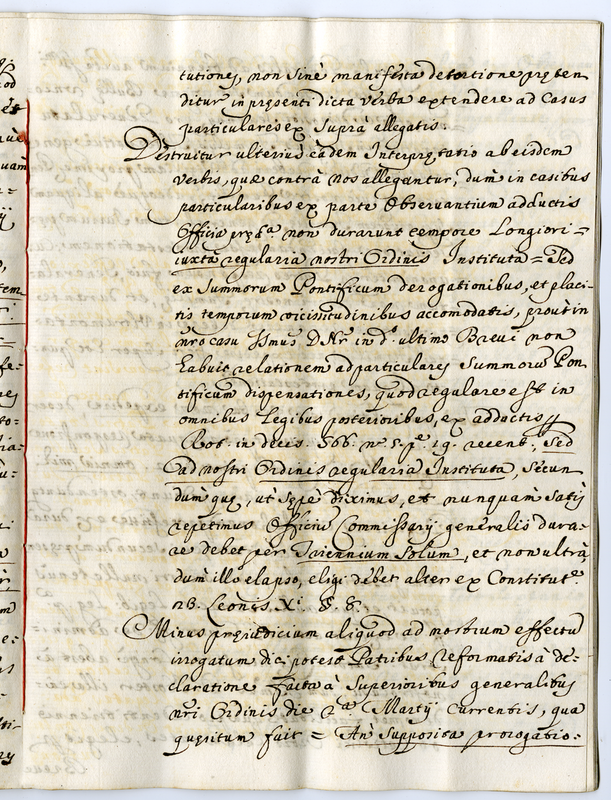 tutiones, non sinè manifesta detortione pręten
ditur in pręsenti dicta verba extendere ad Casus
particulares ex suprà allegatis.
Destruitur ulteriùs eadem Interprętatio ab eisdem
verbis, quæ contrà nos allegantur, dum in casibus
particularibus ex parte Observantium adductis
Officia pręta. non durarunt tempore Longiori =
iuxtà regularia nostri Ordinis Instituta = Sed
ex Summorum Pontificum derogationibus, et placi-
tis temporum vicissitudinibus accomodatis, prout in
nro casu Ssmus D. Nr. in do. ultimo Brevi non
habuit relationem ad particulares Summorũ Pon
tificum dispensationes, quod regulare est in
omnibus Legibus posterioribus, ex adductis
Rot. in decis. 566. no. 5. pe. 19. recent., Sed
ad nostri Ordinis regularia Instituta, secun
dum quę, ut sępe diximus, et nunquam satis
repetimus Officiũ Commissarij generalis dura-
re debet per Triennium solum, et non ultrà,
dum illo elapso, eligi debet alter ex Constitut.e
nB. Leonis X.i §. 8.
Minus pręiudicium aliquod ad nostrum effectũ
irrogatum dici potest Patribus Reformatis à de-
claratione facta à Superioribus generalibus
nri Ordinis die 2a. Martij Currentis, qua
quęsitum fuit = An supposita prorogatio-